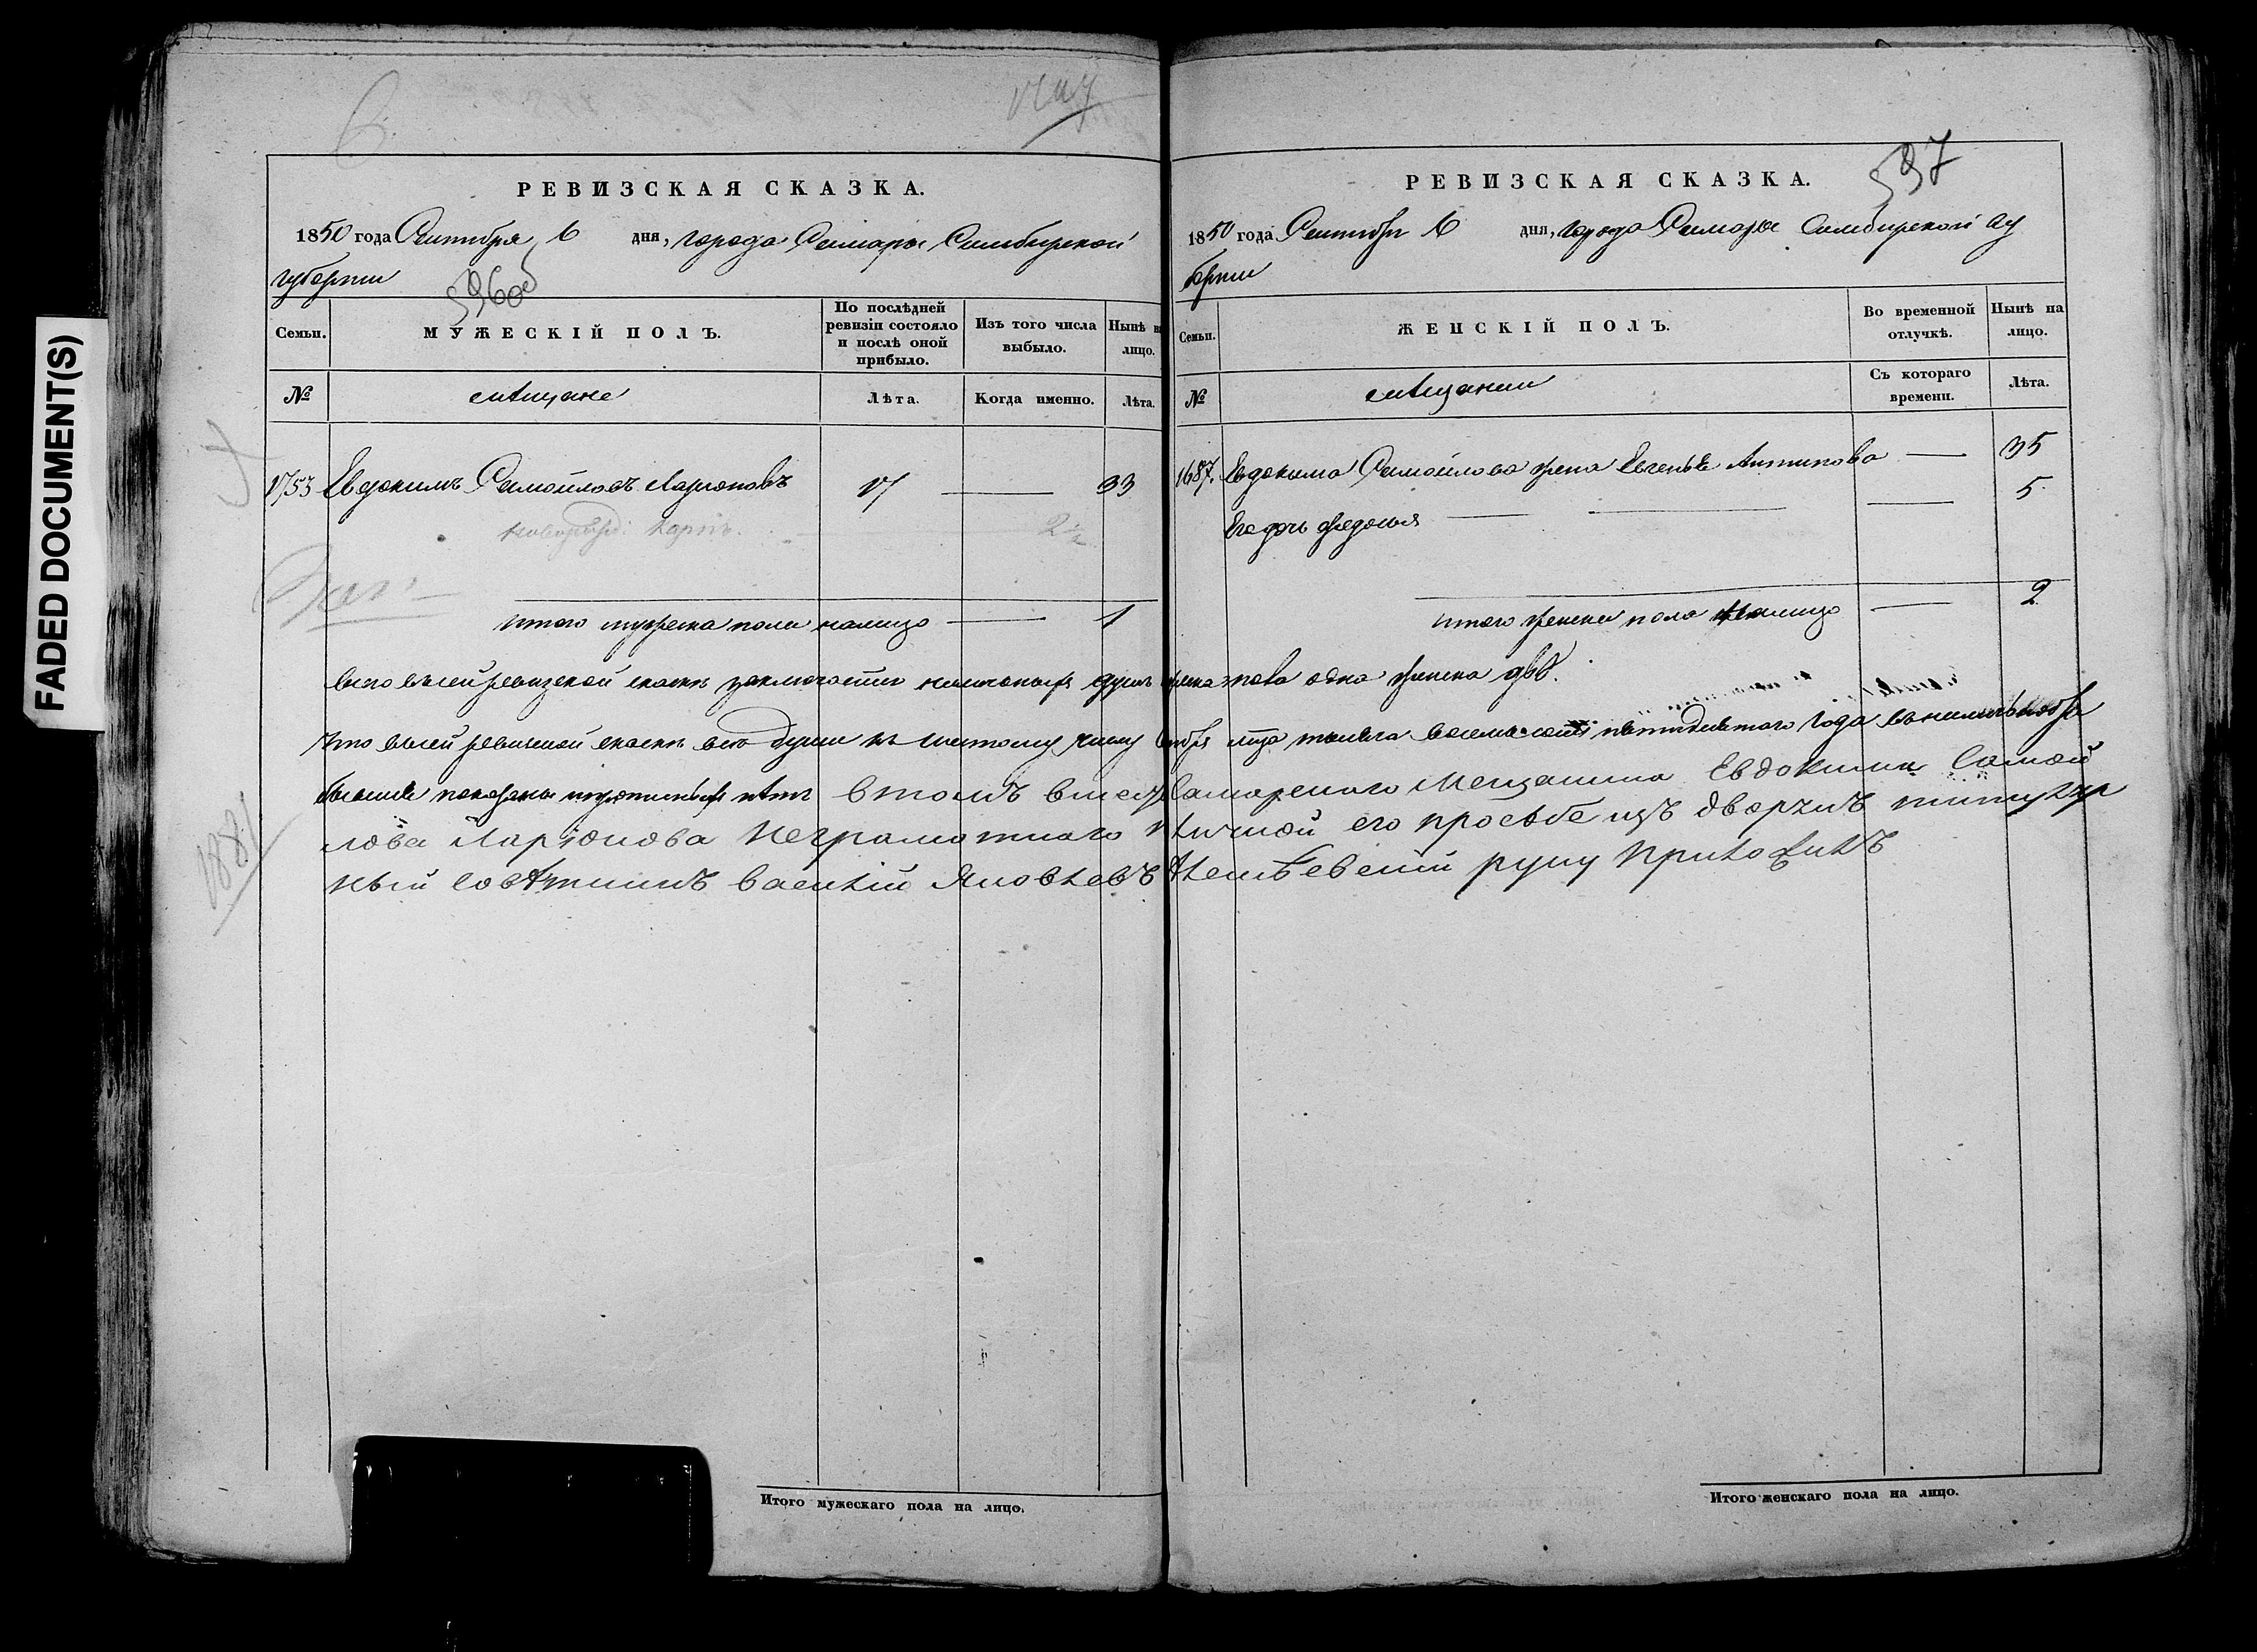 FADED DOCUMENT(S)
РЕВИЗСКАЯ СКАЗКА.
1850 года Сентября 6 дня, города Самары Симбирской
губернии
596 об
Семьи. МУЖЕСКІЙ ПОЛЪ. По послѣдней ревизіи состояло и послѣ оной прибыло. Изъ того числа выбыло. Нынѣ на лицо.
№ мѣщане Лѣта. Когда именно. Лѣта.
1753 Евдокимъ Самойловъ Ларіоновъ 17 — 33
Итого мужеска пола налицо — 1
Итого мужескаго пола на лицо.
1881
597
РЕВИЗСКАЯ СКАЗКА.
1850 года Сентября 6 дня, города Самары Симбирской гу
берніи
Семьи. ЖЕНСКІЙ ПОЛЪ. Во временной отлучкѣ. Нынѣ на лицо.
№ мѣщанки Съ котораго времени. Лѣта.
1687. Евдокима Самойлова жена Евгенья Антипова — 35
Его дочь Федосья — 5
Итого женска пола налицо — 2
Всего въ сей ревизской сказкѣ заключается наличныхъ душъ мужеска пола одна женска двѣ.
Что въ сей ревизской сказкѣ всѣ души къ шестому числу Сентября мѣсяца тысяча восемьсотъ пятидесятаго года въ наличности
показаны лѣтъ втомъ вместо Самарскаго Мещанина Евдокима Самой
лова Ларіонова неграмотнаго поличной его просьбе изъ дворянъ титуляр
ный Совѣтникъ Василій Яковлевъ руку приложилъ
Итого женскаго пола на лицо.